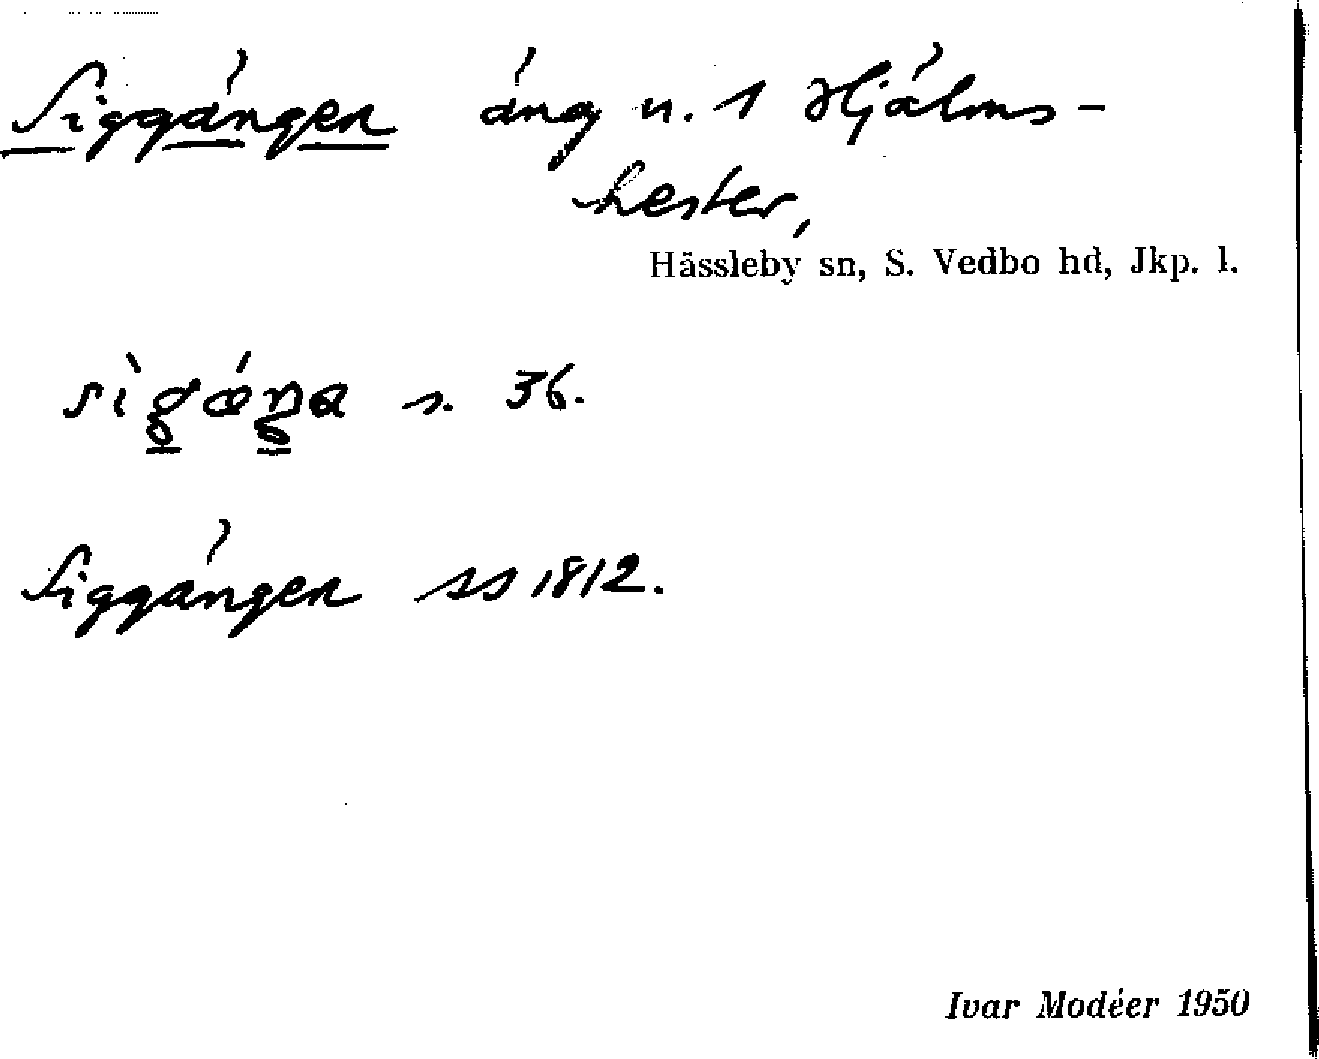 Siggängen äng n. 1 Hjälms-
hester,
Hässleby sn, S. Vedbo hd, Jkp. l.
s. 36.
Siggängen ss 1812.
Ivar Modéer 1950